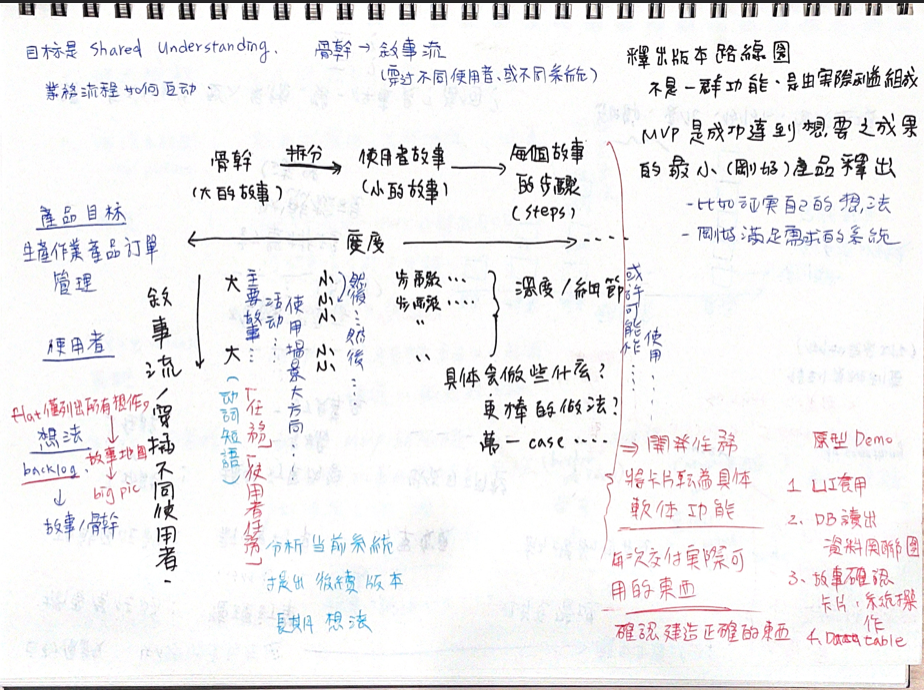 目標是 Shared Understanding.
骨幹 → 敘事流
(穿过不同使用者、或不同系統)
業務流程如何互动.
釋出版本路線圖
不是一群功能、是由實際利益組成
MVP 是成功達到想要之成果
的最小(剛好)產品釋出
-比如証實自己的想法
-剛好滿足需求的系統
骨幹 拆分→ 使用者故事 → 每個故事
(大的故事) (小的故事) 的步驟
(steps)
產品目標
生產作業產品訂單
管理
← 廣度 → ....
敘事流/穿插不同使用者.
大 大
主要故事...
活动...
使用場景大方向
(动詞短語)
「任務」「使用者任務」
小 小 小 小 小
然後...然後...
步驟...
步驟....
〃
〃
深度/細節
或許可能作
使用......
具体會做些什么?
更棒的做法?
萬一 case ....
使用者
flat 僅列出所有想作
想法
backlog
↓
故事/骨幹
故事地圖
↓
big pic
分析当前系統
提出後續版本
長期想法
⇒ 開發任務
將卡片転為具体
軟体功能
每次交付實際可
用的東西
確認建造正確的東西
原型 Demo
1. UI 套用
2. DB 讀出
資料関聯圖
3. 故事確認
卡片、系統操
作
4. Data table